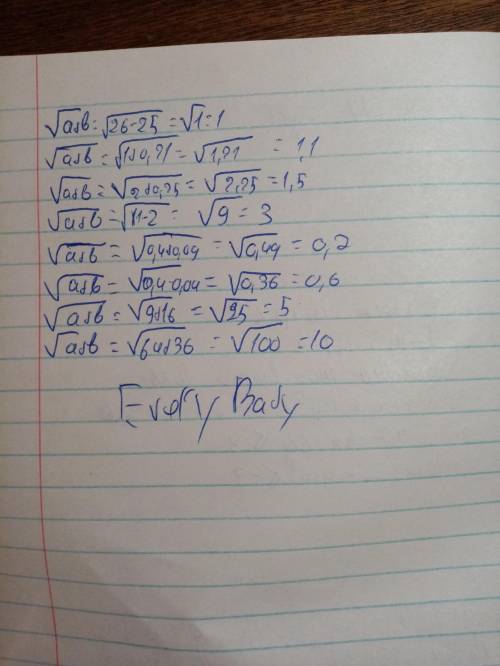 √a±b = √26-25 = √1 = 1
√a±b = √1±0,21 = √1,21 = 1,1
√a±b = √2±0,25 = √2,25 = 1,5
√a±b = √11-2 = √9 = 3
√a±b = √0,4±0,09 = √0,49 = 0,7
√a±b = √0,4-0,04 = √0,36 = 0,6
√a±b = √9±16 = √25 = 5
√a±b = √64±36 = √100 = 10
Every Bady